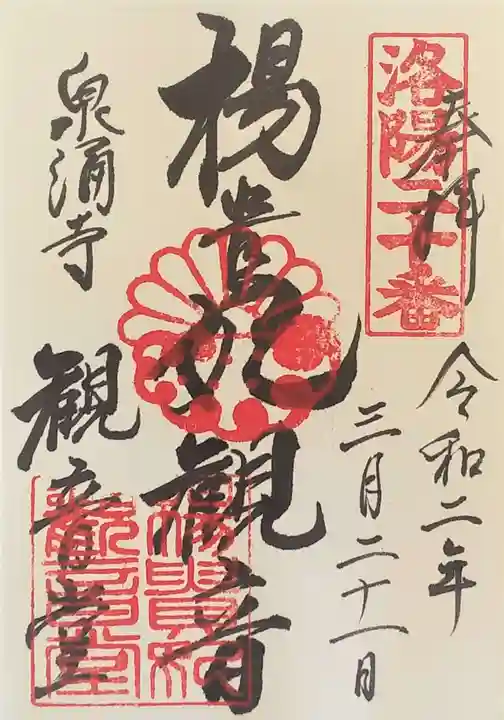 奉拝
洛陽二十番
令和二年
三月二十一日
楊貴妃観音
泉涌寺
観音堂
楊貴妃
觀音堂